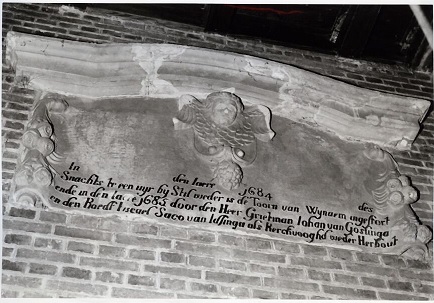 In den Iaere 1684 des
Snachts te een uyr by Stil weder is de Toorn van Wynaem ingestort
ende in den Iaere 1685 door den Heer Grietman Iohan van Goslinga
en den Raedt Saco van Idsinga als Kerckvooghd weder Herbout